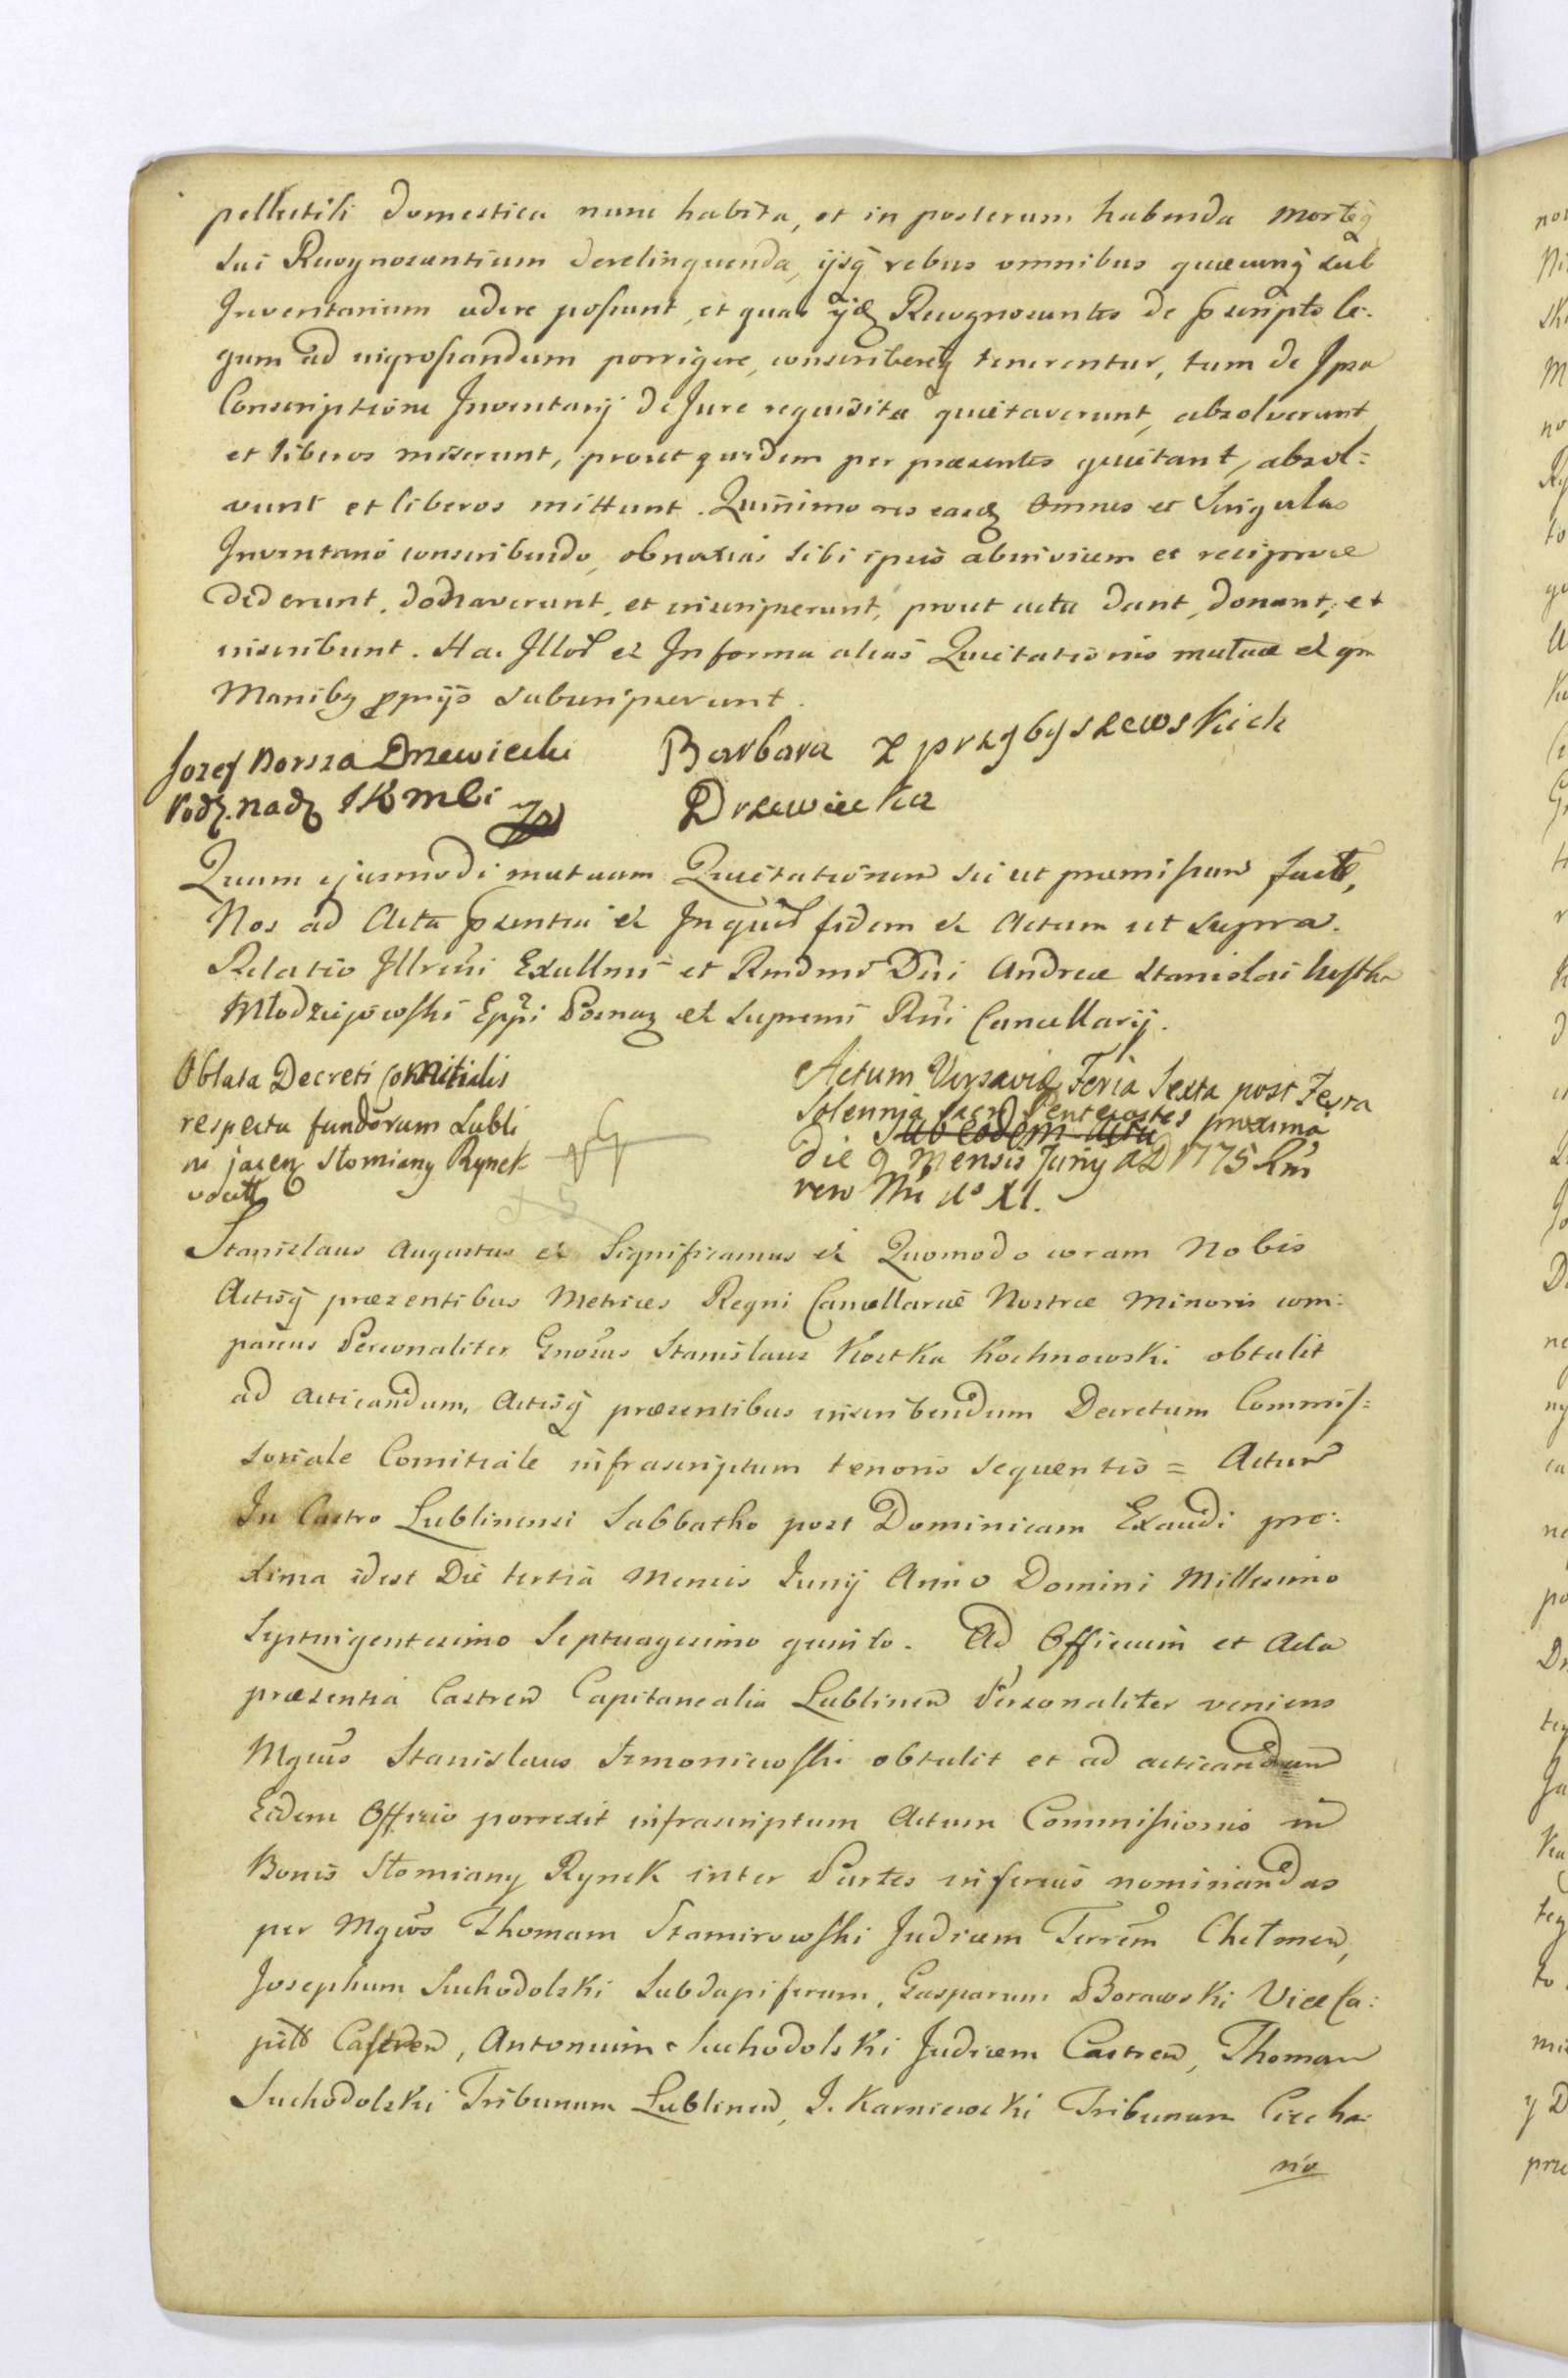 pellectili domestica nunc habita, et in posterum habenda morteq́
sui Recognoscentium derelinquenda, ijsq́ rebus omnibus quæcunq́ sub
Inventarium cadere possunt, et quas ijd Recognoscentes de pscripto le-
gum ad ingrossandum porrigere, conscribereq tenerentur, tum de Ipsa
Conscriptione Inventarij de Jure requisita quietaverunt, absolverunt
et liberos miserunt, prout quidem per præsentes quietant, absol:
vunt et liberos mittunt. Quinimo res easd omnes et Singulas
Inventario conscribendo obnoxias sibi ipsis abinvicem et reciproce
dederunt, donaverunt, et inscripserunt, prout acta dant, donant, et
inscribunt. Hac Illor et Informa alias Quietationis mutuæ et qm
Manibq pprijs subscripserunt.
Jozef Norsza Drzewiecki
Podz. nadz JKMci
Barbara z przybyszewskich
Drzewiecka
Quam ejusmodi mutuam Quietationem sic ut præmissum facte,
Nos ad Acta pzentia et In quor fidem et Actum ut supra.
Relatio Illrmi Excllmi et Rmdmi Dni Andreæ Stanislai Kostka
Młodziejowski Eppi Posnan et Supremi Rni Cancellarij.
Oblata Decreti Comitialis
respectu fundorum Lubli
ni jacen Słomiany Rynek
vocatt
Actum Varsaviæ Feria Sexta post Festa
Solennia Sacri Pentecostes proxima
Sub eodem actu
die 9 Mensis Junij AD 1775 Rni
vero Nri Ao XI.
Stanislaus Augustus et Significamus et Quomodo coram Nobis
Actisq́ præsentibus Metrices Regni Cancellariæ Nostræ Minoris com:
parens Personaliter Gnosus Stanislaus Kostka Kochnowski obtulit
ad acticandum, Actisq́ præsentibus inscribendum Decretum Commis:
soriale Comitiale infrascriptum tenoris sequentis = Actum
In Castro Lublinensi Sabbatho post Dominicam Exaudi pro:
xima idest Die tertia Mensis Junij Anno Domini Millesimo
Septingentesimo Septuagesimo quinto. Ad Officium et Acta
præsentia Castren Capitanealia Lublinen Personaliter veniens
Mgcus Stanislaus Szmoniewski obtulit et ad acticandum
Eidem Officio porrexit infrascriptum Actum Commissionis in
Bonis Słomiany Rynek inter Partes inferius nominandas
per Mgcos Thomam Stamirowski Judicem Terrem Chełmen,
Josephum Suchodolski Subdapiferum, Gasparum Borawski Vice Ca:
pitt Castren, Antonium Suchodolski Judicem Castren, Thomam
Suchodolski Tribunum Lublinen, J. Karniewski Tribunum Ciecha:
no